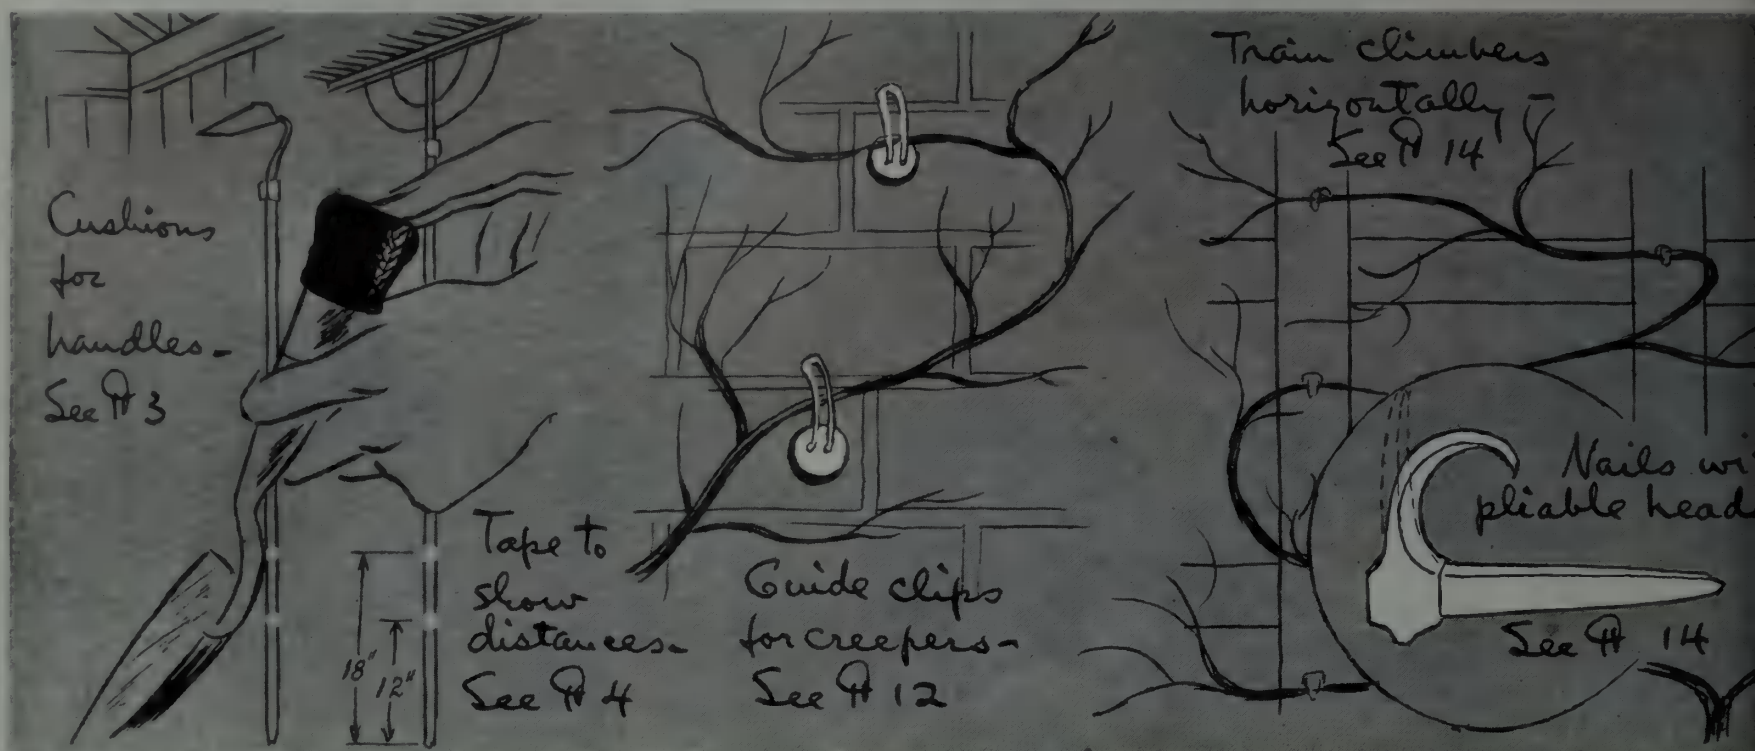 Cushions
for
handles-
See ¶ 3
18"
12"
Tape to
show
distances-
See ¶ 4
Guide clips
for creepers-
See ¶ 12
Train climbers
horizontally -
See ¶ 14
Nails wi
pliable head
See ¶ 14